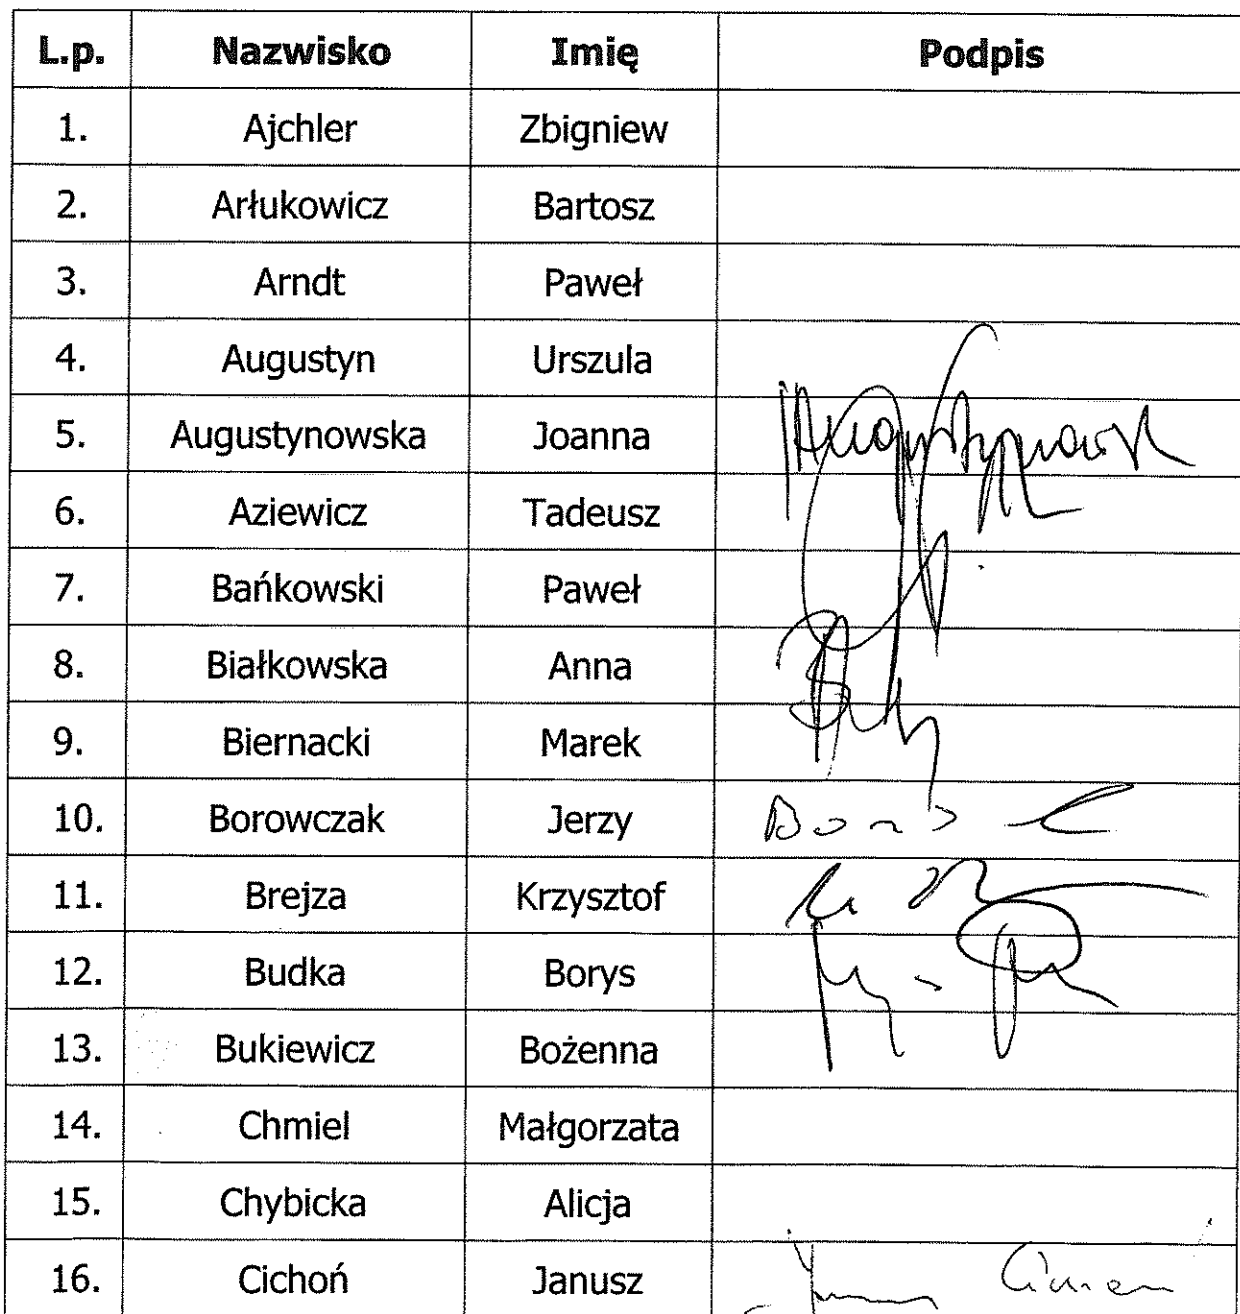 L.p. Nazwisko Imię Podpis
1. Ajchler Zbigniew
2. Arłukowicz Bartosz
3. Arndt Paweł
4. Augustyn Urszula
5. Augustynowska Joanna
6. Aziewicz Tadeusz
7. Bańkowski Paweł
8. Białkowska Anna
9. Biernacki Marek
10. Borowczak Jerzy
11. Brejza Krzysztof
12. Budka Borys
13. Bukiewicz Bożenna
14. Chmiel Małgorzata
15. Chybicka Alicja
16. Cichoń Janusz